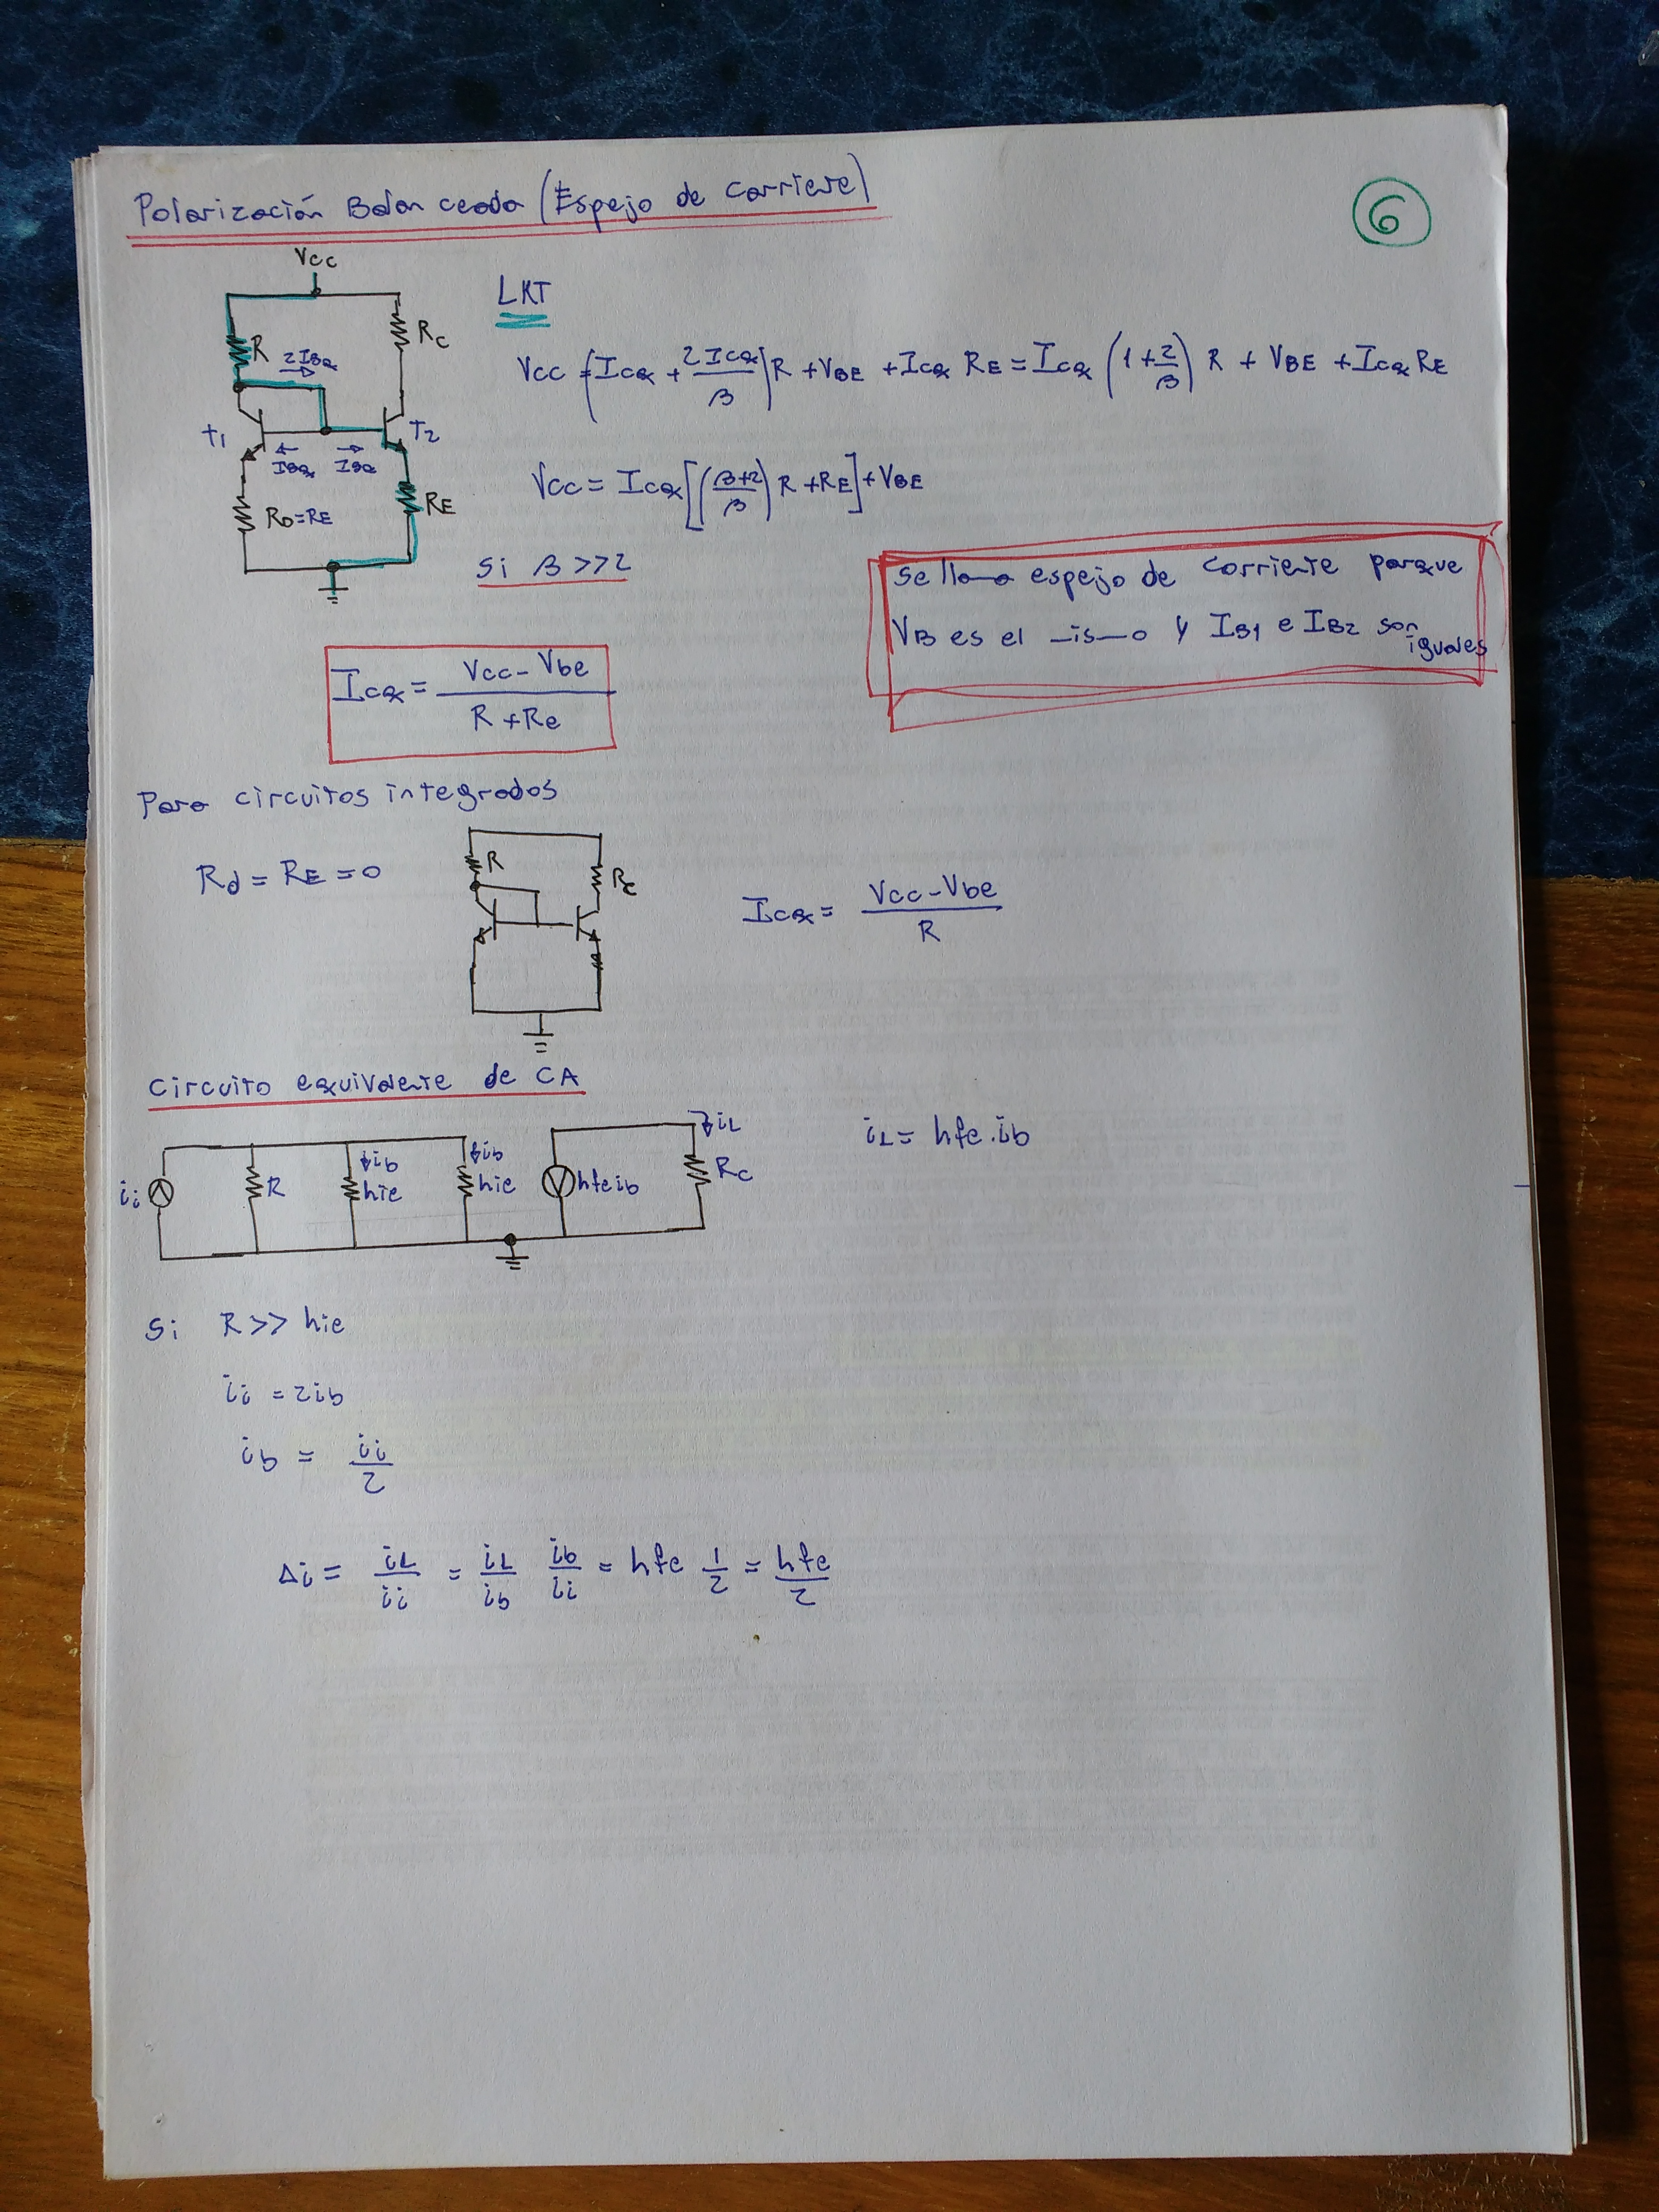 Polarización Balanceada (Espejo de Corriente)
6
Vcc
R
2IBQ
RC
T1
T2
IBQ
IBQ
RD=RE
RE
LKT
Vcc = (ICQ + 2ICQ/β) R + VBE + ICQ RE = ICQ (1 + 2/β) R + VBE + ICQ RE
Vcc = ICQ [((β+2)/β) R + RE] + VBE
Si β >> 2
Se llama espejo de corriente porque
VB es el mismo y IB1 e IB2 son
iguales
ICQ = (Vcc - Vbe) / (R + Re)
Para circuitos integrados
Rd = RE = 0
R
Rc
ICQ = (Vcc - Vbe) / R
Circuito equivalente de CA
ii
R
ib
hie
ib
hie
hfe ib
iL
RC
iL = hfe . ib
Si R >> hie
ii = 2ib
ib = ii / 2
Δi = iL/ii = iL/ib ib/ii = hfe 1/2 = hfe/2